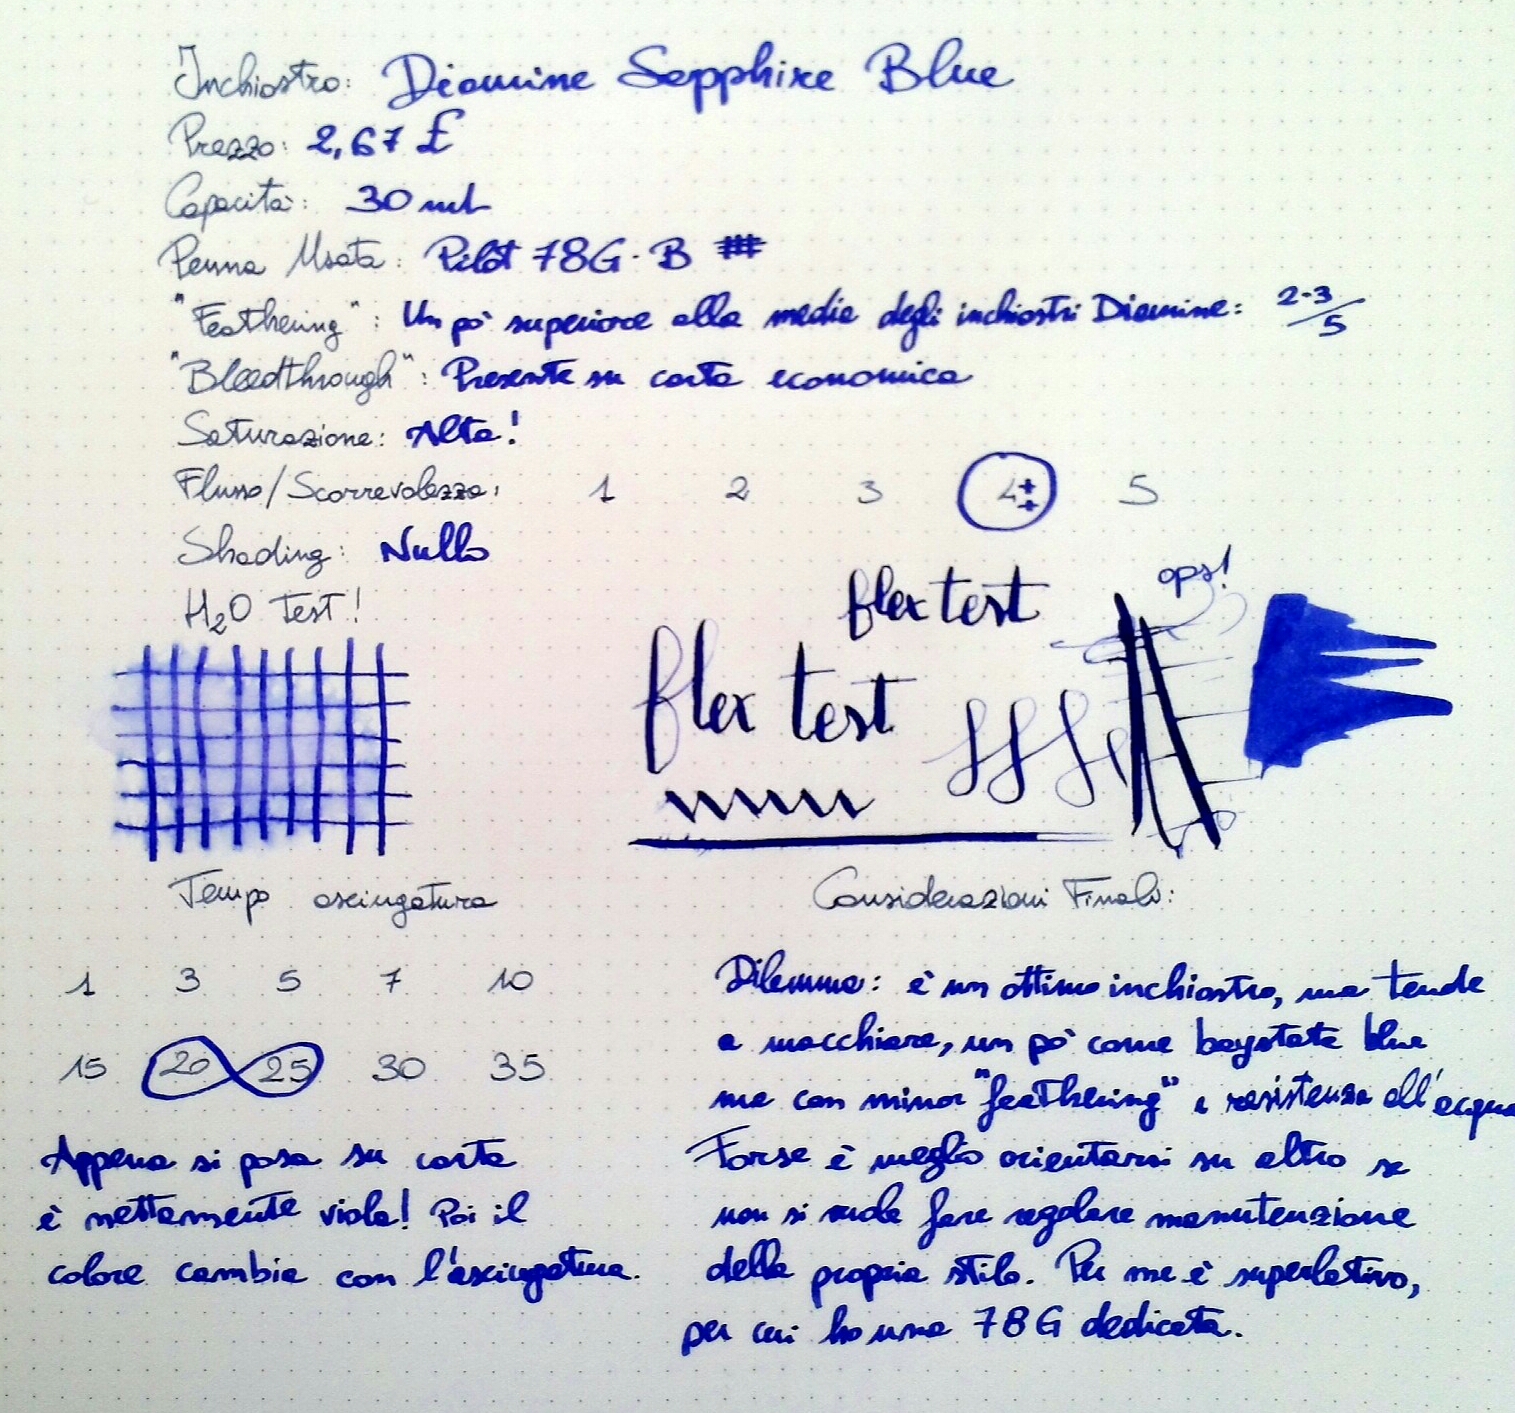 Inchiostro: Diamine Sapphire Blue
Prezzo: 2,67 £
Capacità: 30 ml
Penna Usata: Pilot 78G - B
"Feathering": Un pò superiore alla media degli inchiostri Diamine: 2-3/5
"Bleedthrough": Presente su carta economica
Saturazione: Alta!
Flusso/Scorrevolezza: 1 2 3 4++ 5
Shading: Nullo
H2O Test!
flex test
ops!
flex test
Tempo asciugatura
1 3 5 7 10
15 20 25 30 35
Appena si posa su carta
è nettamente viola! Poi il
colore cambia con l'asciugatura.
Considerazioni Finali:
Dilemma: è un ottimo inchiostro, ma tende
a macchiare, un pò come baystate blue
ma con minor "feathering" e resistenza all'acqua
Forse è meglio orientarsi su altro se
non si vuole fare regolare manutenzione
della propria stilo. Per me è superlativo,
per cui ho una 78G dedicata.